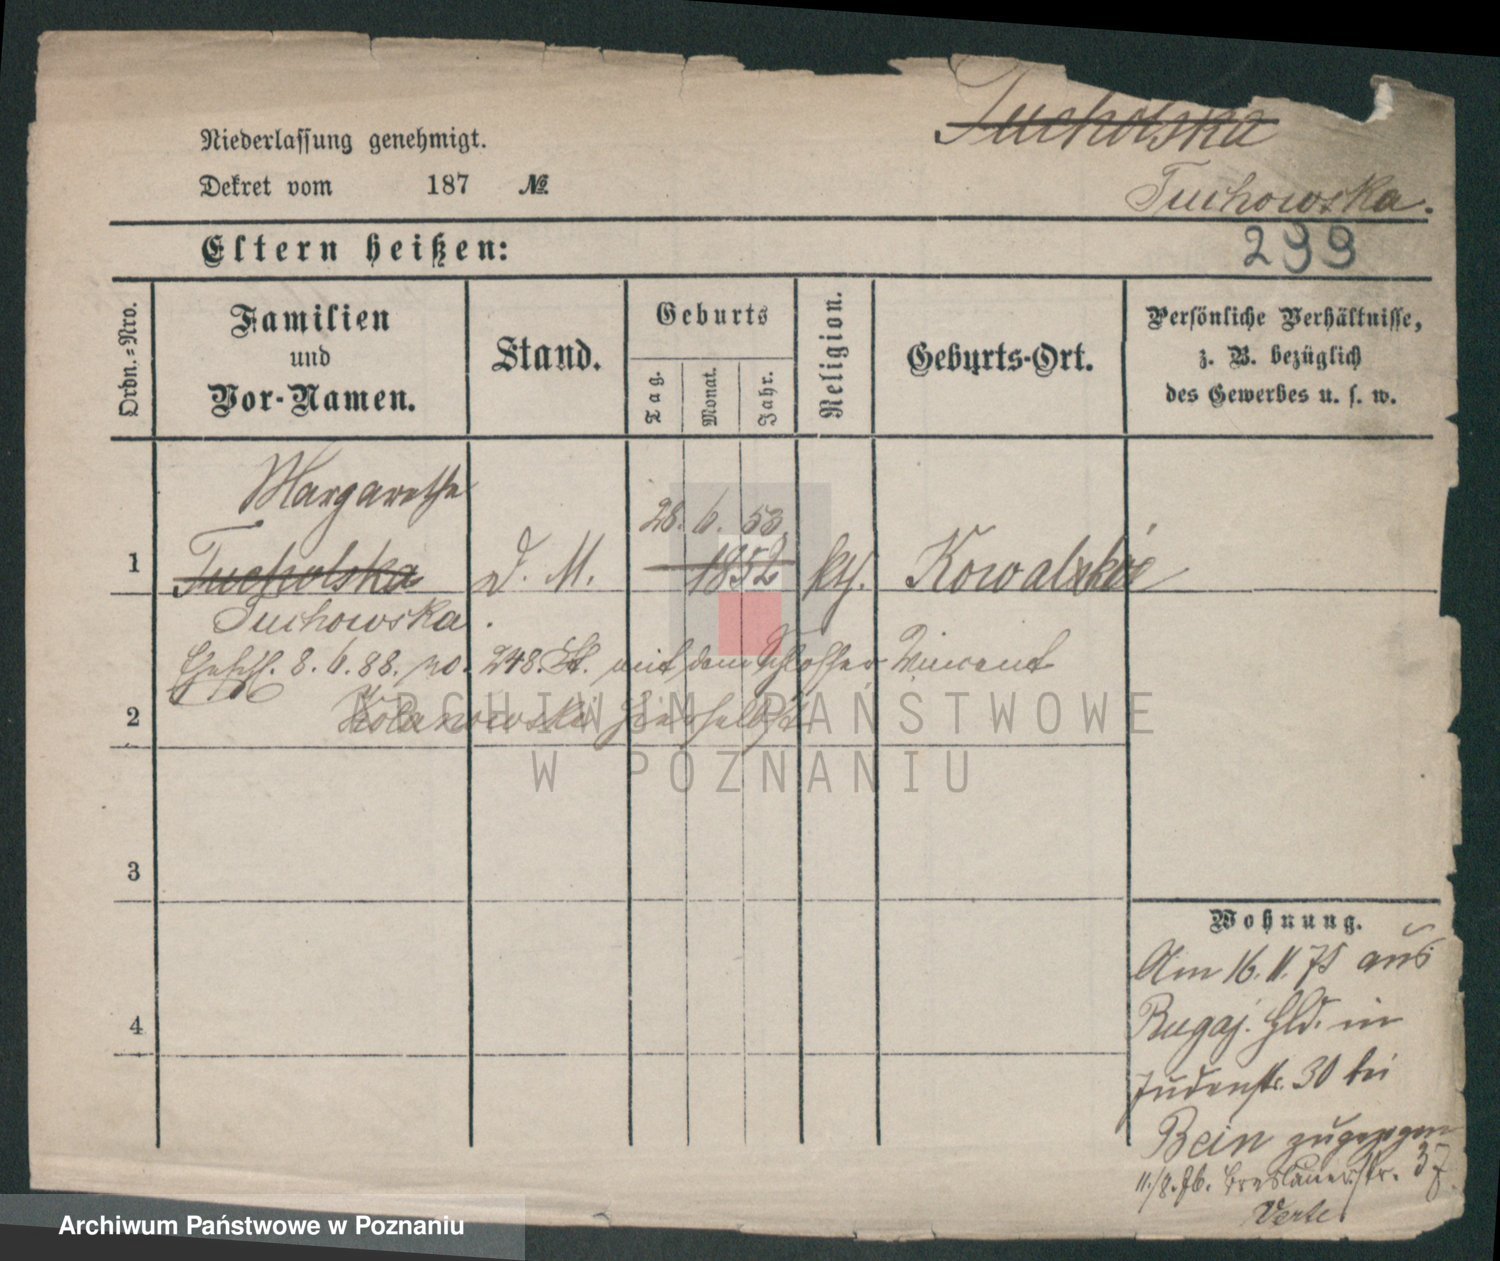 Tucholska
Niederlassung genehmigt.
Dekret vom 187 №
Tuchowska.
Eltern heißen:
299
Ordn.-Nro.
Familien
und
Vor-Namen.
Stand.
Geburts
Tag.
Monat.
Jahr.
Religion.
Geburts-Ort.
Persönliche Verhältnisse,
z. B. bezüglich
des Gewerbes u. s. w.
Margarethe
28. 6. 53
1 Tucholska D. M. 1852 kth. Kowalskie
Tuchowska.
8. 6. 88. no. 248. St. mit dem Schlosser Vincent
2 Kolanowski hierselbst
3
Wohnung.
Am 16. 11. 75 aus
4 Rugaj. Hld. in
Judenstr. 30 bei
Bein zugezogen
11./8. 76. Breslauerstr. 37
Verte
ARCHIWUM PAŃSTWOWE
W POZNANIU
Archiwum Państwowe w Poznaniu